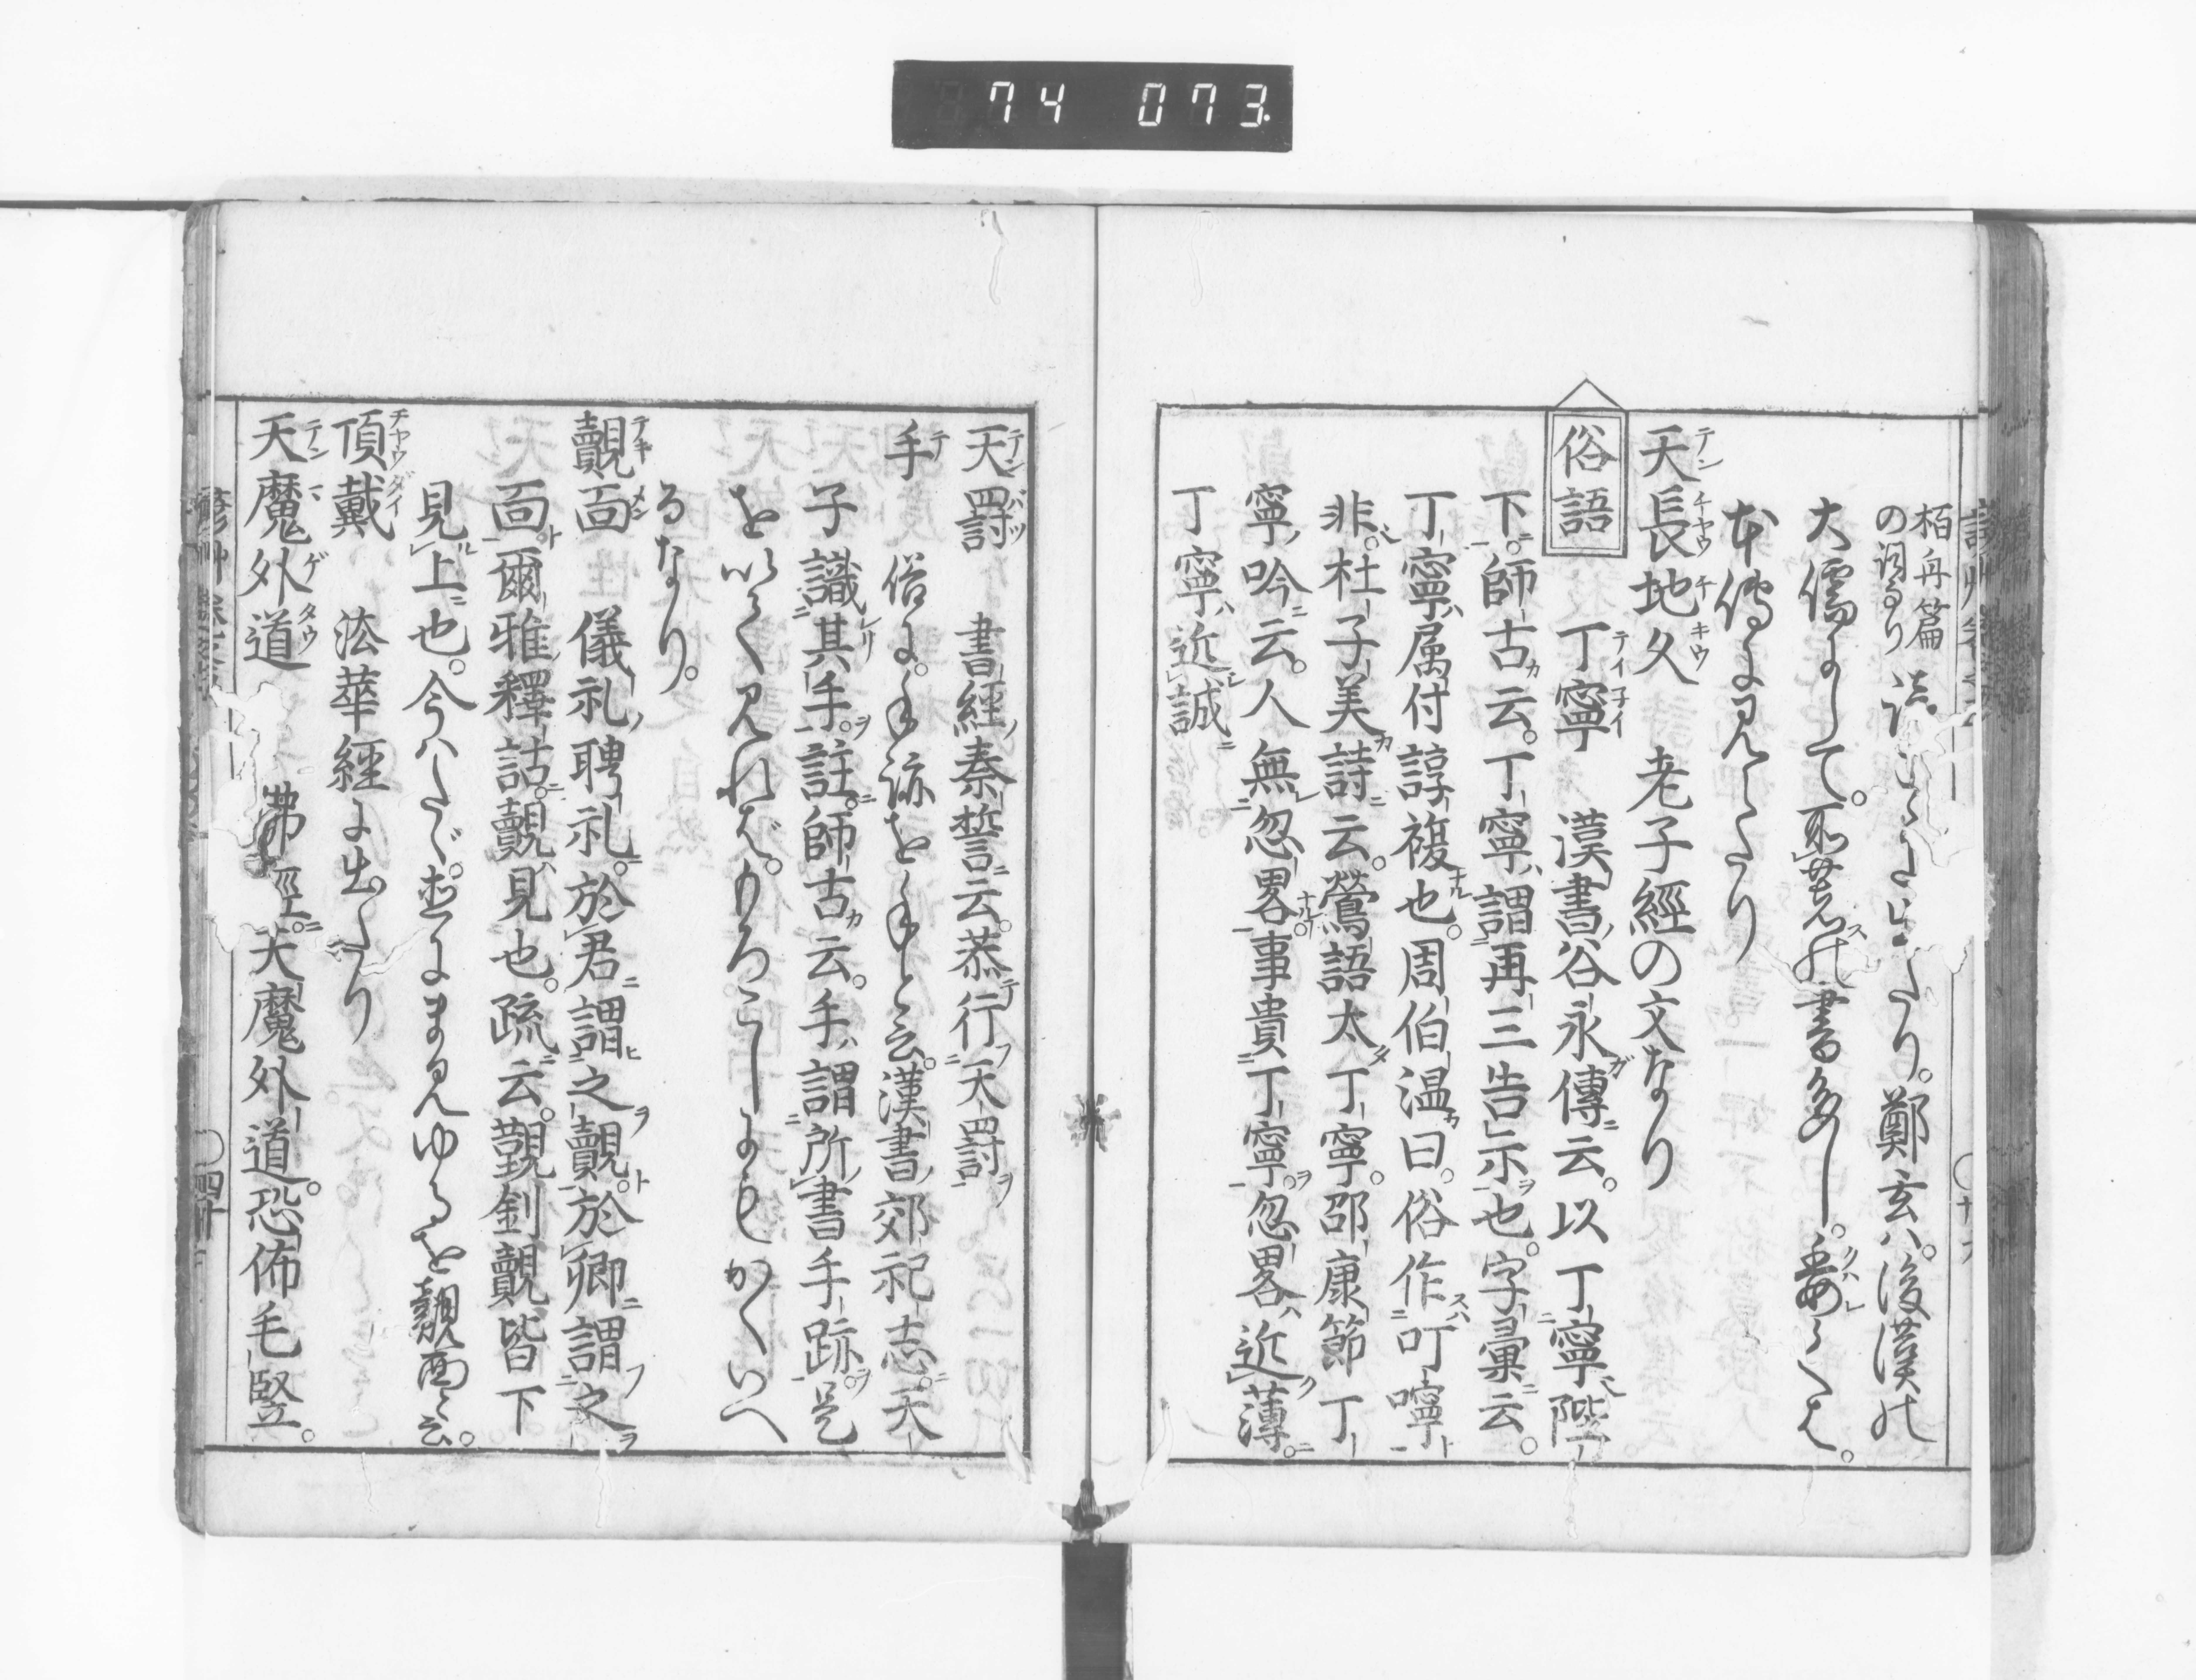 74 073
栢舟篇
の詞なり
たり。鄭玄ハ。後漢の
大儒にして。
本傳に見えたり
天長地久 老子經の文なり
俗語 丁寧 漢書谷永傳云。以丁寧陛
下。師古云。丁寧、謂再三告示也。字彙云。
丁寧、属付諄複也。周伯温曰。俗作叮嚀
非。杜子美詩云。鶯語太丁寧。邵康節丁
寧吟云。人無忽畧事貴丁寧。忽畧近薄。
丁寧近誠
天罸 書經秦誓云。恭行天罸
手 俗に。手跡を手と云。漢書郊祀志。天
子識其手。註。師古云。手謂所書手跡。是
を以て見れば。もろこしにもかくいへ
るなり。
覿面 儀礼聘礼。於君謂之覿。於卿謂之
面。爾雅釋詁。覿見也。疏云。覲釗覿皆下
見上也。今ハたゞまみゆるを覿面と云。
頂戴 法華經に出たり
天魔外道 佛經。天魔外道。恐佈毛竪。